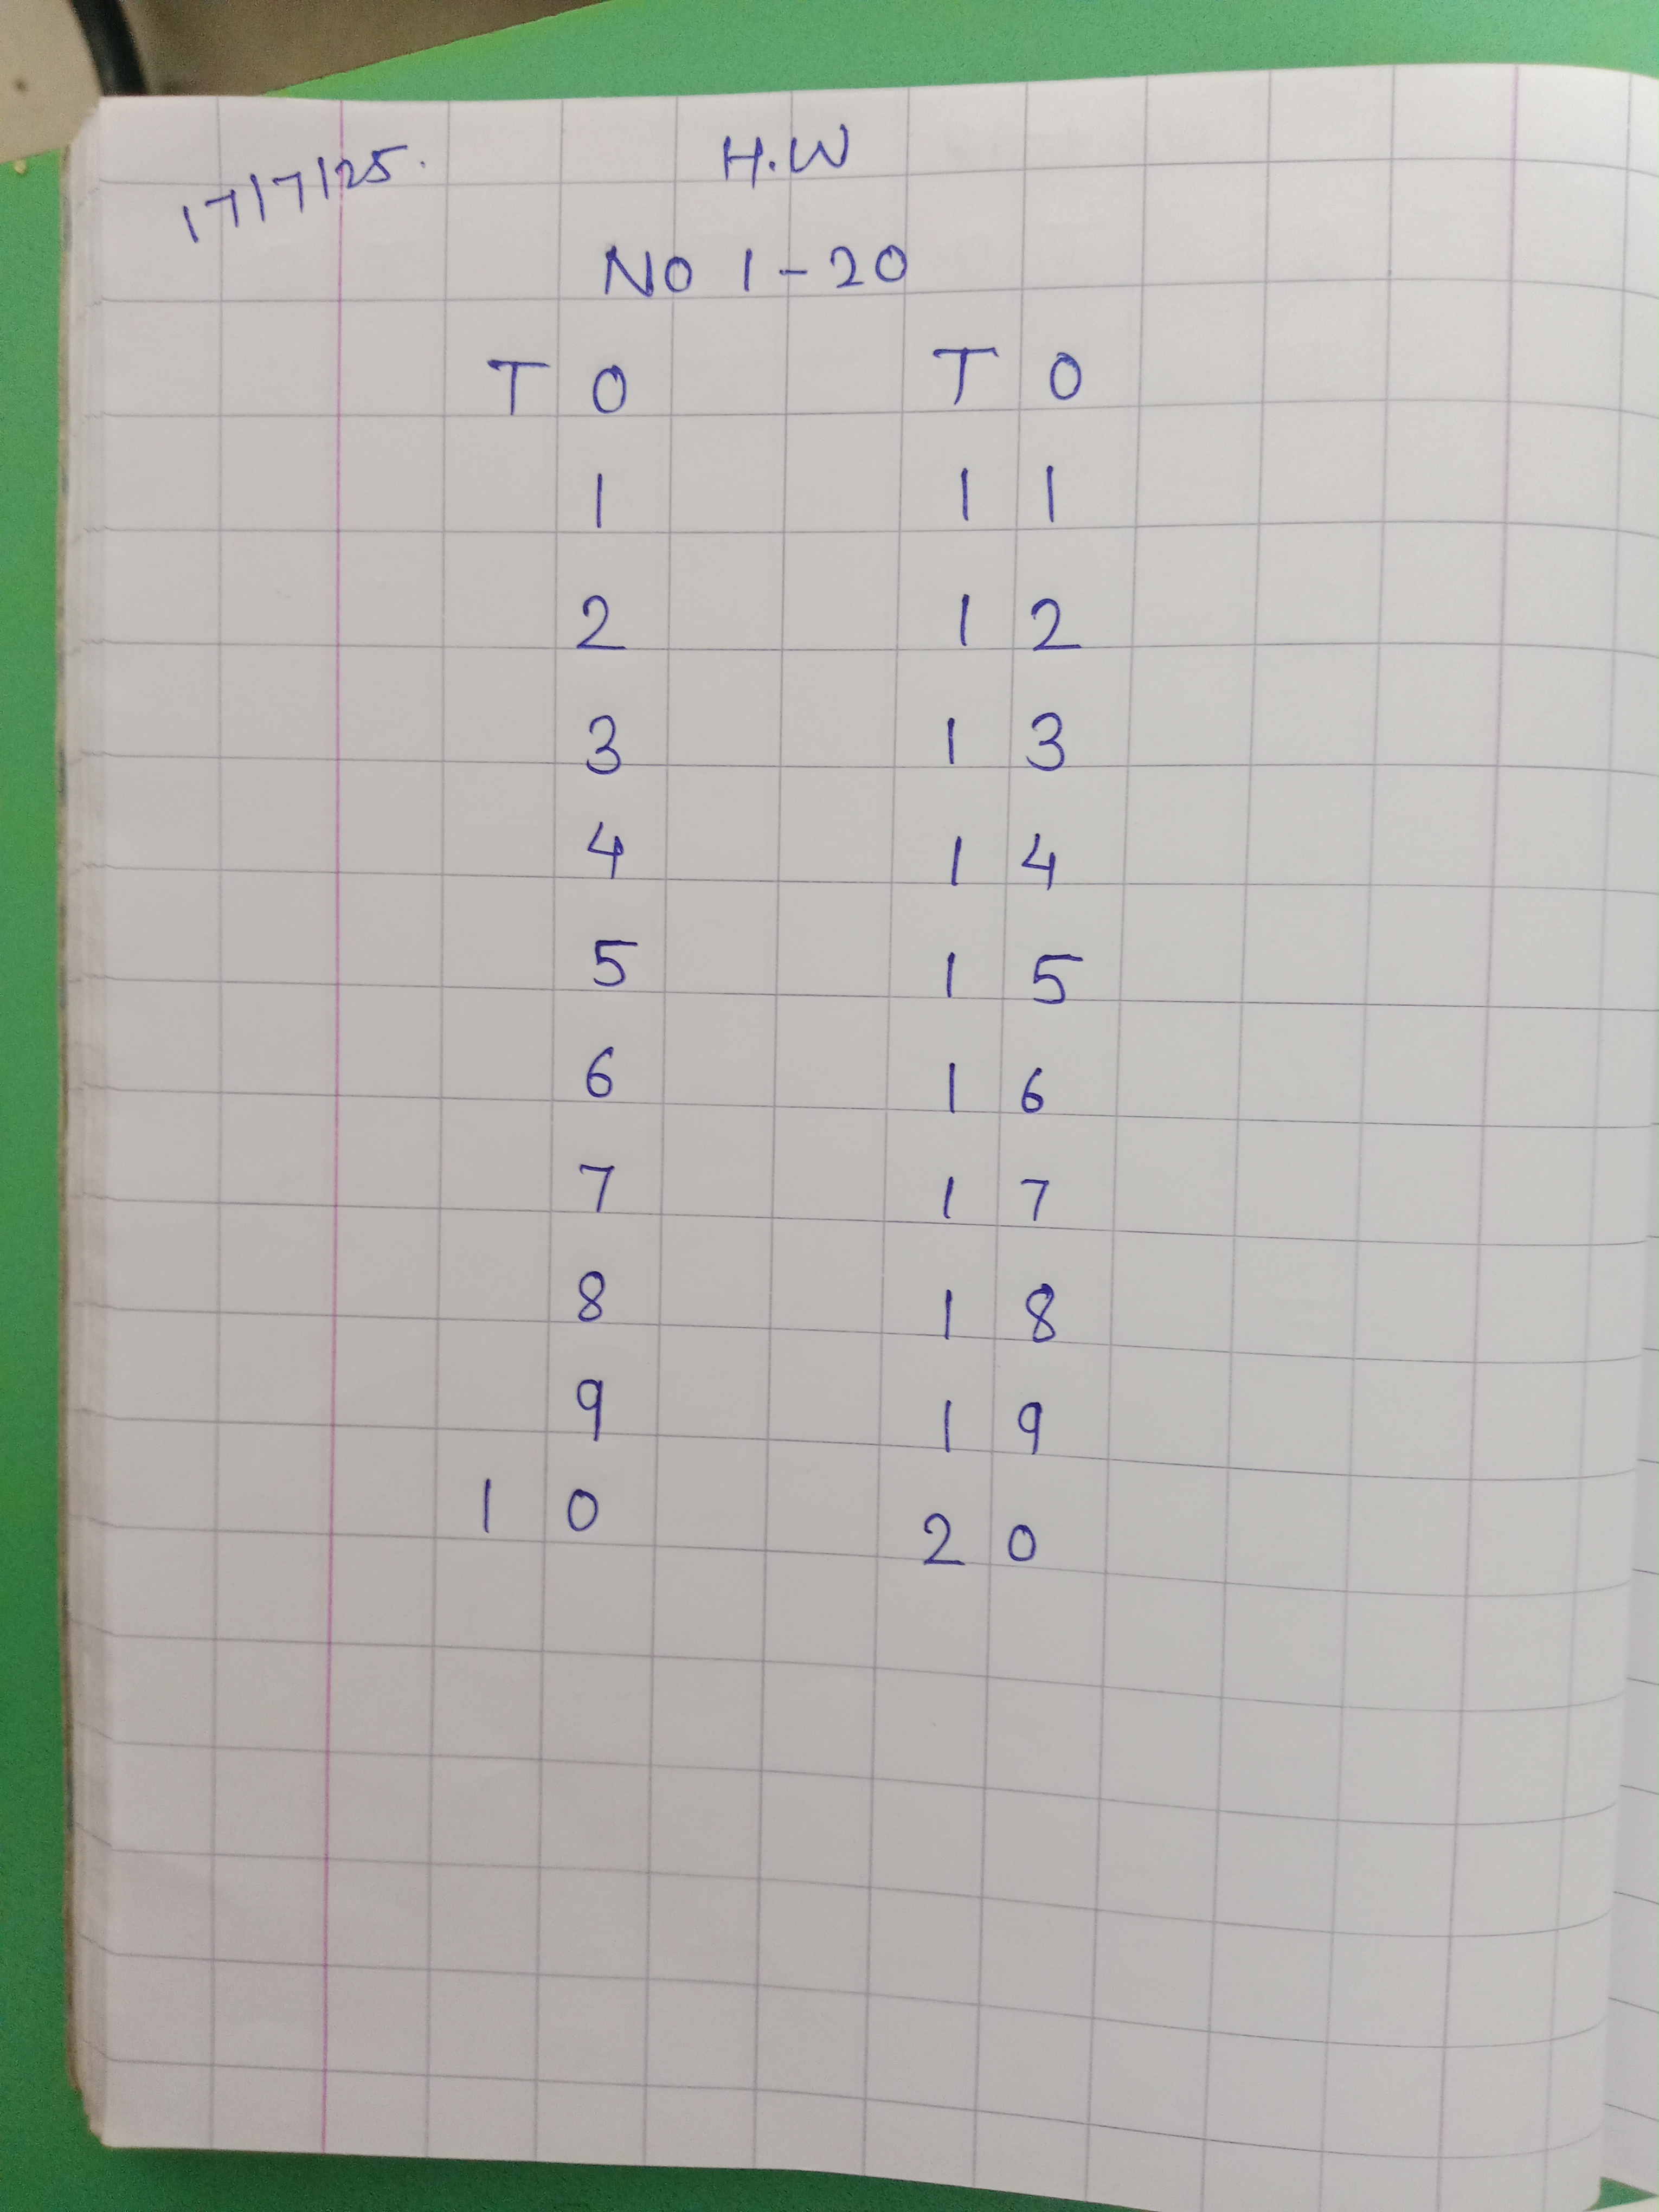 17/7/25.
H.W
NO 1-20
T O T O
1 1 1
2 1 2
3 1 3
4 1 4
5 1 5
6 1 6
7 1 7
8 1 8
9 1 9
1 0 2 0